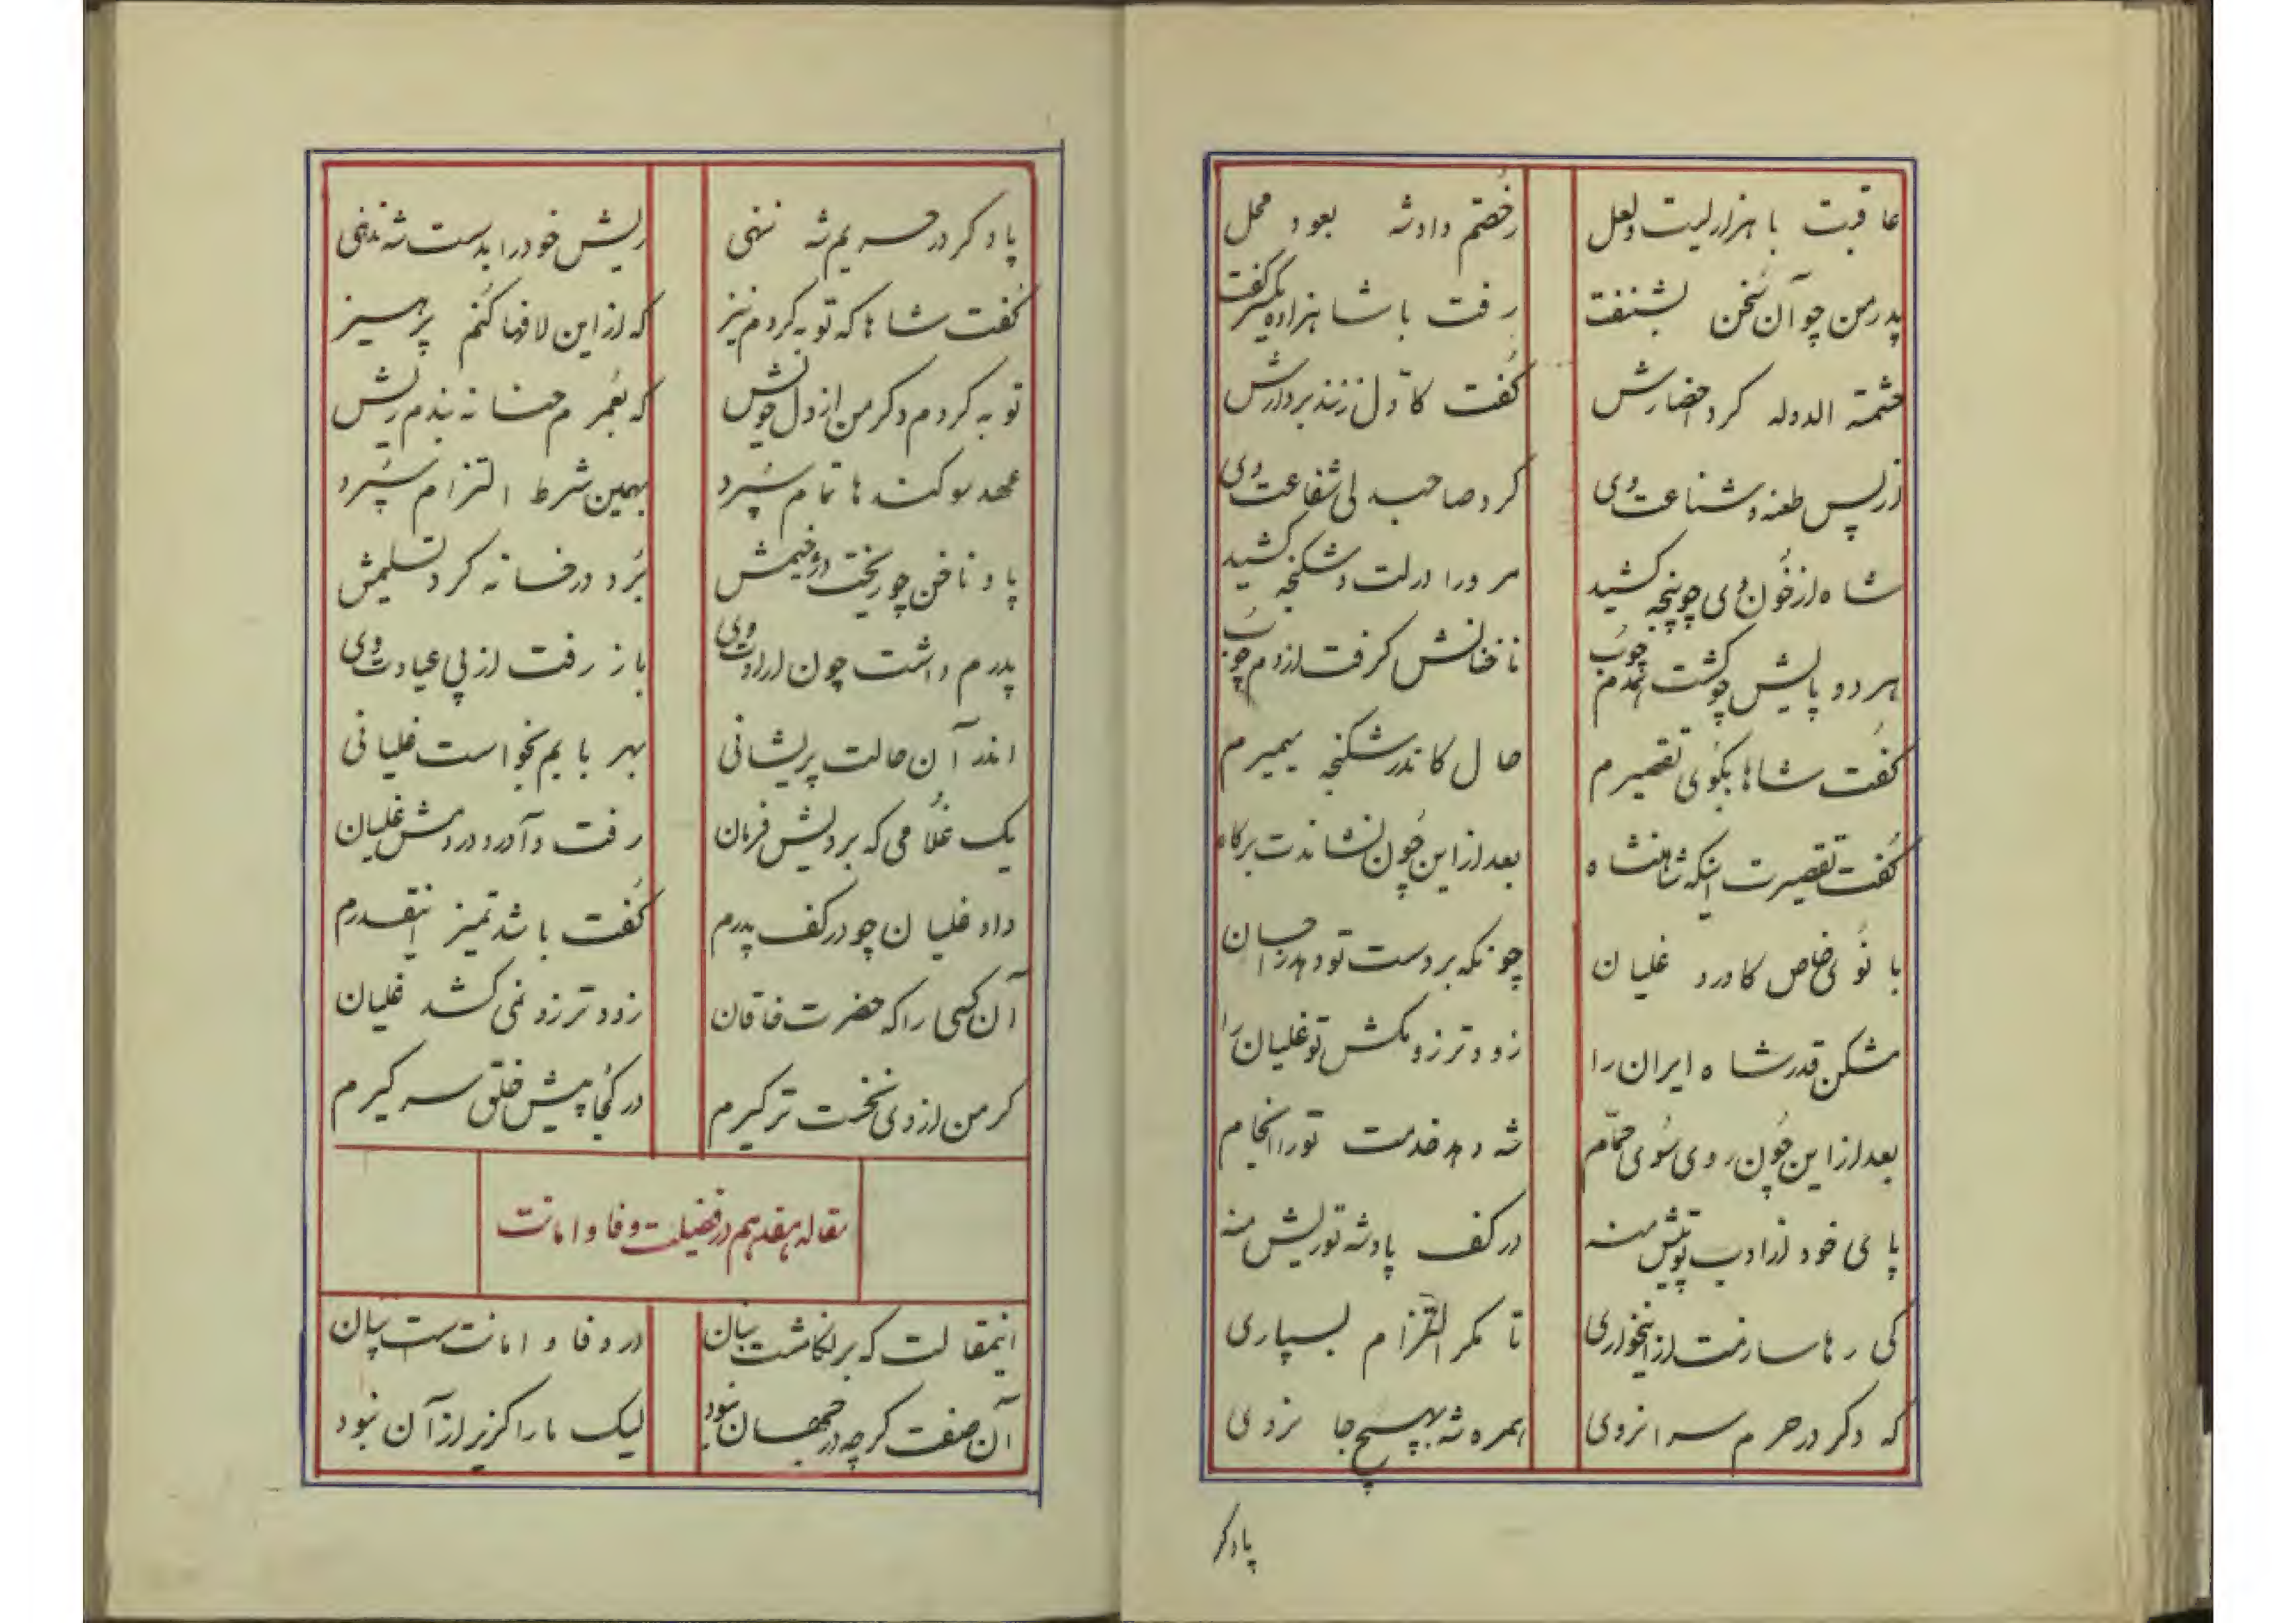 عاقبت با هزار لیت و لعل رخصتم داد شه بعود محل
پدر من چو آن سخن بشنفت رفت با شاهزاده یکسر گفت
حشمة الدوله کرد احضارش گفت کاول زنند بر دارش
از پس طعنه و شناعت وی کرد صاحبدلی شفاعت وی
شاه از خون وی چو پنجه کشید مر ورا در لت و شکنجه کشید
هر دو پایش چو گشت از دم چوب ناخنانش گرفت از دم چوب
گفت شاها بگوی تقصیرم حال کاندر شکنجه میمیرم
گفت تقصیرت اینکه شاهنشاه بعد از این چون نشاندت بر گاه
بانوی خاص کاورد غلیان چونکه بر دست تو دهد
مشکن قدر شاه ایران را زودتر زو مکش تو غلیان را
بعد از این چون روی سوی حمام شه دهد خدمت تو را انجام
پای خود از ادب تو پیش منه در کف پادشه تو ریش منه
کی رها سازمت از این خواری تا مگر التزام بسپاری
که دگر در حرم سرا نروی همره شه بهیچ جا نروی
پا دگر
پا دگر در حریم شه ننهی ریش خود را بدست شه ندهی
گفت شاها که توبه کردم نیز که از این لافها کنم پرهیز
توبه کردم دگر من از دل خویش که بعمرم حنا نه بندم ریش
عهد سوگندها تمام سپرد بهمین شرط التزام سپرد
پا و ناخن چو ریخت دژخیمش برد در خانه کرد تسلیمش
پدرم داشت چون ارادت وی باز رفت از پی عیادت وی
اندر آن حالت پریشانی بهر بابم بخواست غلیانی
یک غلامی که بردیش فرمان رفت و آورد در دمش غلیان
داد غلیان چو در کف پدرم گفت باشد تمیز اینقدرم
آن کسی را که حضرت خاقان زودتر زو نمی کشد غلیان
گر من از وی نخست تر گیرم در کجا پیش خلق سر گیرم
مقاله هفدهم در فضیلت وفا و امانت
اینمقالت که بر نگاشت بنان در وفا و امانت ست بیان
آن صفت گرچه در جهان نبود لیک ما را گزیر از آن نبود